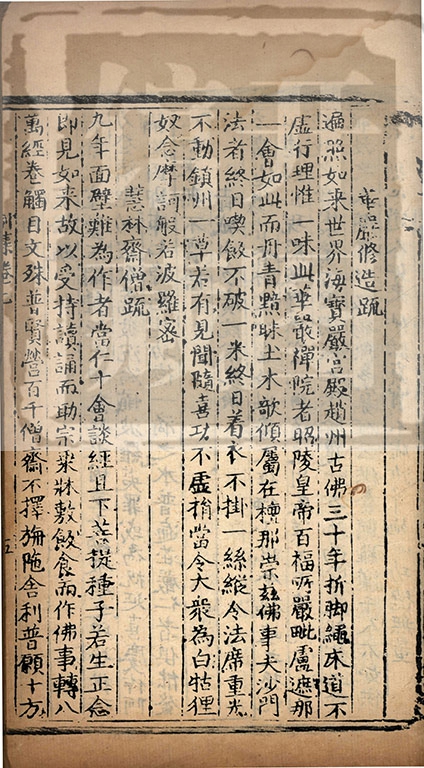 華嚴修造疏
遍照如來世界海寶嚴宮殿趙州古佛三十年折脚繩床道不
虛行理惟一味此華嚴禪院者昭陵皇帝百福所嚴毗盧遮那
一會如此而丹青黯昧土木欹傾屬在檀那崇茲佛事夫沙門
法者終日喫飯不破一米終日着衣不掛一絲縱令法席重光
不動鎮州一草若有見聞隨喜功不虛捐當令大衆為白牯狸
奴念摩訶般若波羅密
慧林齋僧疏
九年面壁難為作者當仁十會談經且下菩提種子若生正念
即見如來故以受持讀誦而助宗乘牀敷飲食而作佛事轉八
萬經卷觸目文殊普賢營百千僧齋不擇旃陁舍利普願十方